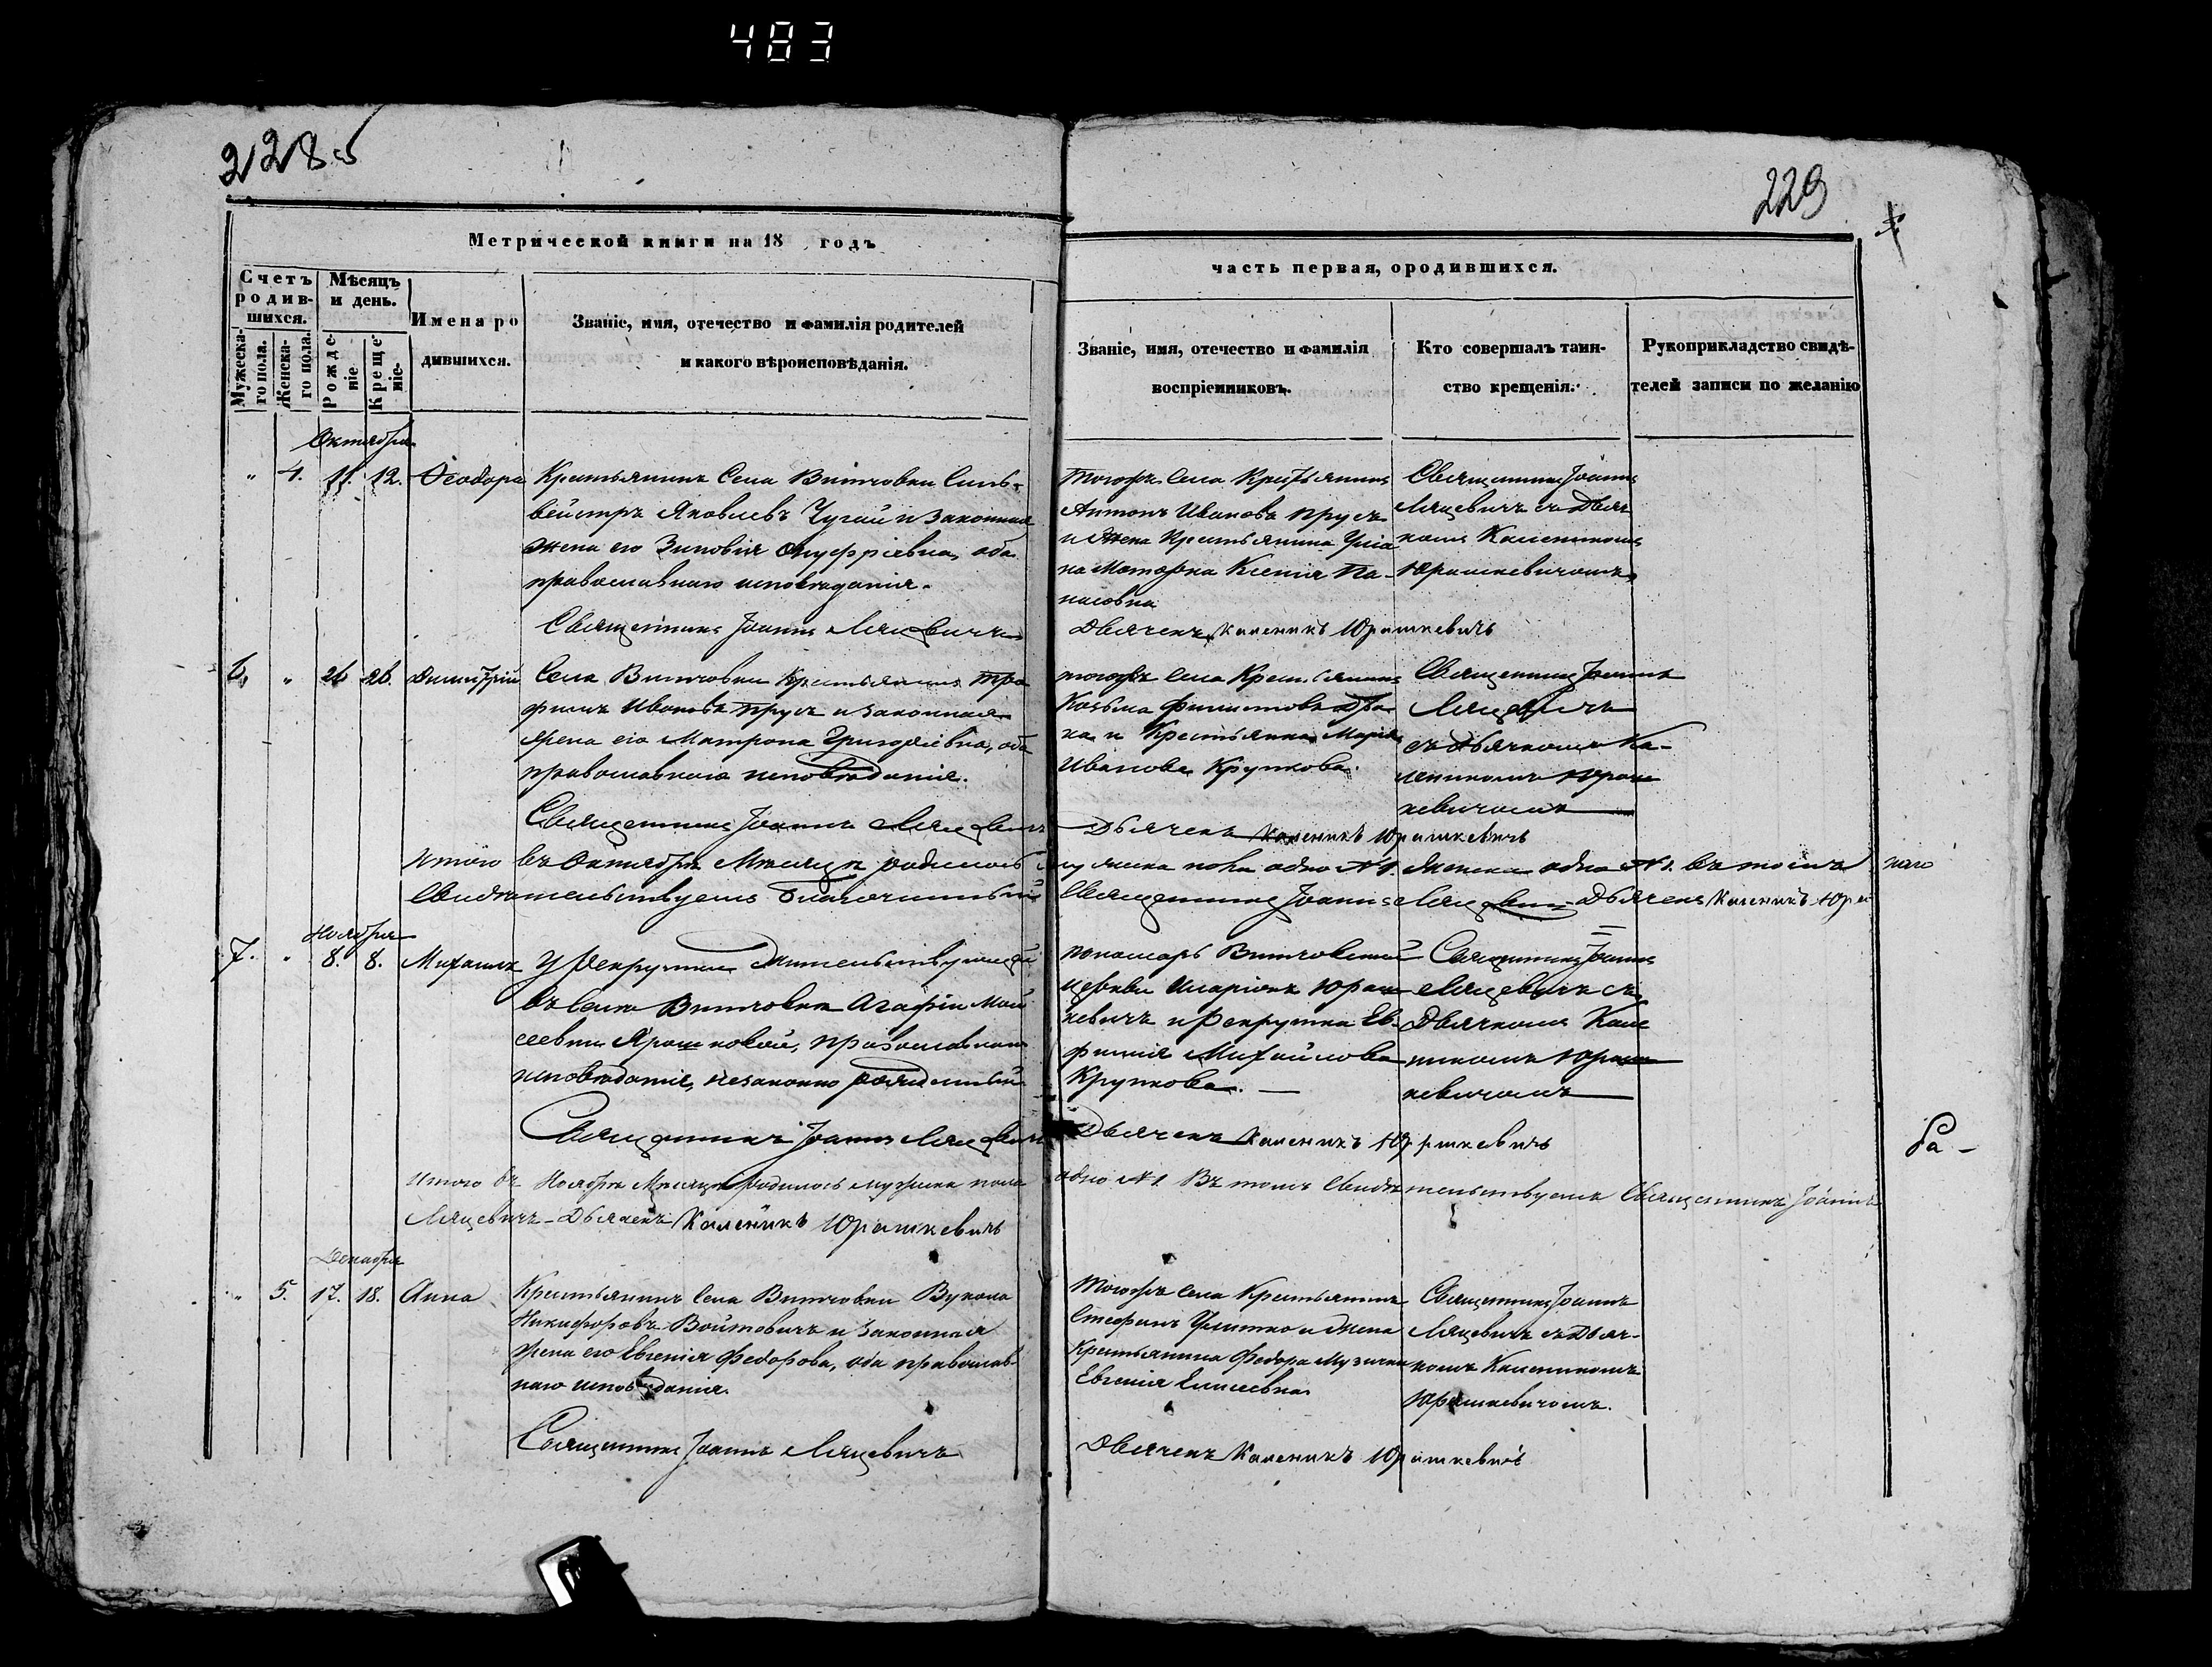 483
228
229
Метрической книги на 18 годъ
часть первая, ородившихся.
Счетъ родив-
шихся.
Мужеска-
го пола.
Женска-
го пола.
Мѣсяцъ
и день.
Рожде-
ніе
Креще-
ніе.
Имена ро
дившихся.
Званіе, имя, отечество и фамилія родителей
и какого вѣроисповѣданія.
Званіе, имя, отечество и фамилія
воспріемниковъ.
Кто совершалъ таин-
ство крещенія.
Рукоприкладство свидѣ-
телей записи по желанію
Октября
" 4. 11. 12. Ѳеодора
Крестьянинъ Села Витчовки Силь-
вейстръ Яковлевъ Чугай и законная
жена его Зиновія Онуфріевна, оба
православнаго исповѣданія.
Священникъ Іоаннъ Ляцевичъ
Тогожъ Села Крестьянинъ
Антонъ Ивановъ Прусъ
и Жена Крестьянина
Ксенія Па-
насовна
Дьячекъ Каленикъ Юрашкевичъ
Священникъ Іоаннъ
Ляцевичъ съ Дьяч-
комъ Каленикомъ
Юрашкевичомъ
6. " 26 26. Димитрій
Села Витчовки Крестьянинъ Тро
фимъ Ивановъ Прусъ и законная
жена его Матрона Григоріевна, оба
православнаго исповѣданія.
Священникъ Іоаннъ Ляцевичъ
тогожъ Села Крестьянинъ
Козьма
и Крестьянка Марія
Иванова Крупкова.
Дьячекъ Каленикъ Юрашкевичъ
Священникъ Іоаннъ
Ляцевичъ
съ Дьячкомъ Ка-
леникомъ Юраш
кевичомъ
Итого въ Октябрѣ Мѣсяцѣ родилось мужеска пола одно №1. Женска одно №1. въ томъ
Свидѣтельствуемъ Священникъ Іоаннъ Ляцевичъ Дьячекъ Каленикъ Юра
Ноября
7. " 8. 8. Михаилъ
У Рекрутки Жительствующей
въ Селѣ Витчовкѣ Агафіи Мои
сеевны Ярошковой, православнаго
исповѣданія, незаконно рожденный
Священникъ Іоаннъ Ляцевичъ
пономарь Витчовской
церкви Иларіонъ Юраш
кевичъ и рекрутка Ев-
фимія Михайлова
Крупкова.
Дьячекъ Каленикъ Юрашкевичъ
Священникъ Іоаннъ
Ляцевичъ съ
Дьячкомъ Кале
никомъ Юраш
кевичомъ
Итого въ Ноябрѣ Мѣсяцѣ родилось мужеска пола одно №1. Въ томъ Свидѣтельствуемъ Священникъ Іоаннъ
Ляцевичъ - Дьячекъ Каленикъ Юрашкевичъ
Декабря
" 5. 17. 18. Анна
Крестьянинъ Села Витчовки Вукола
Никифоровъ Войтовичъ и законная
жена его Евгенія Федорова, оба православ-
наго исповѣданія.
Священникъ Іоаннъ Ляцевичъ
Тогожъ Села Крестьянинъ
Стефанъ Улитко и Жена
Крестьянина Федора Музычки
Евгенія Елисеевна
Дьячекъ Каленикъ Юрашкевичъ
Священникъ Іоаннъ
Ляцевичъ съ Дьяч-
комъ Каленикомъ
Юрашкевичомъ.